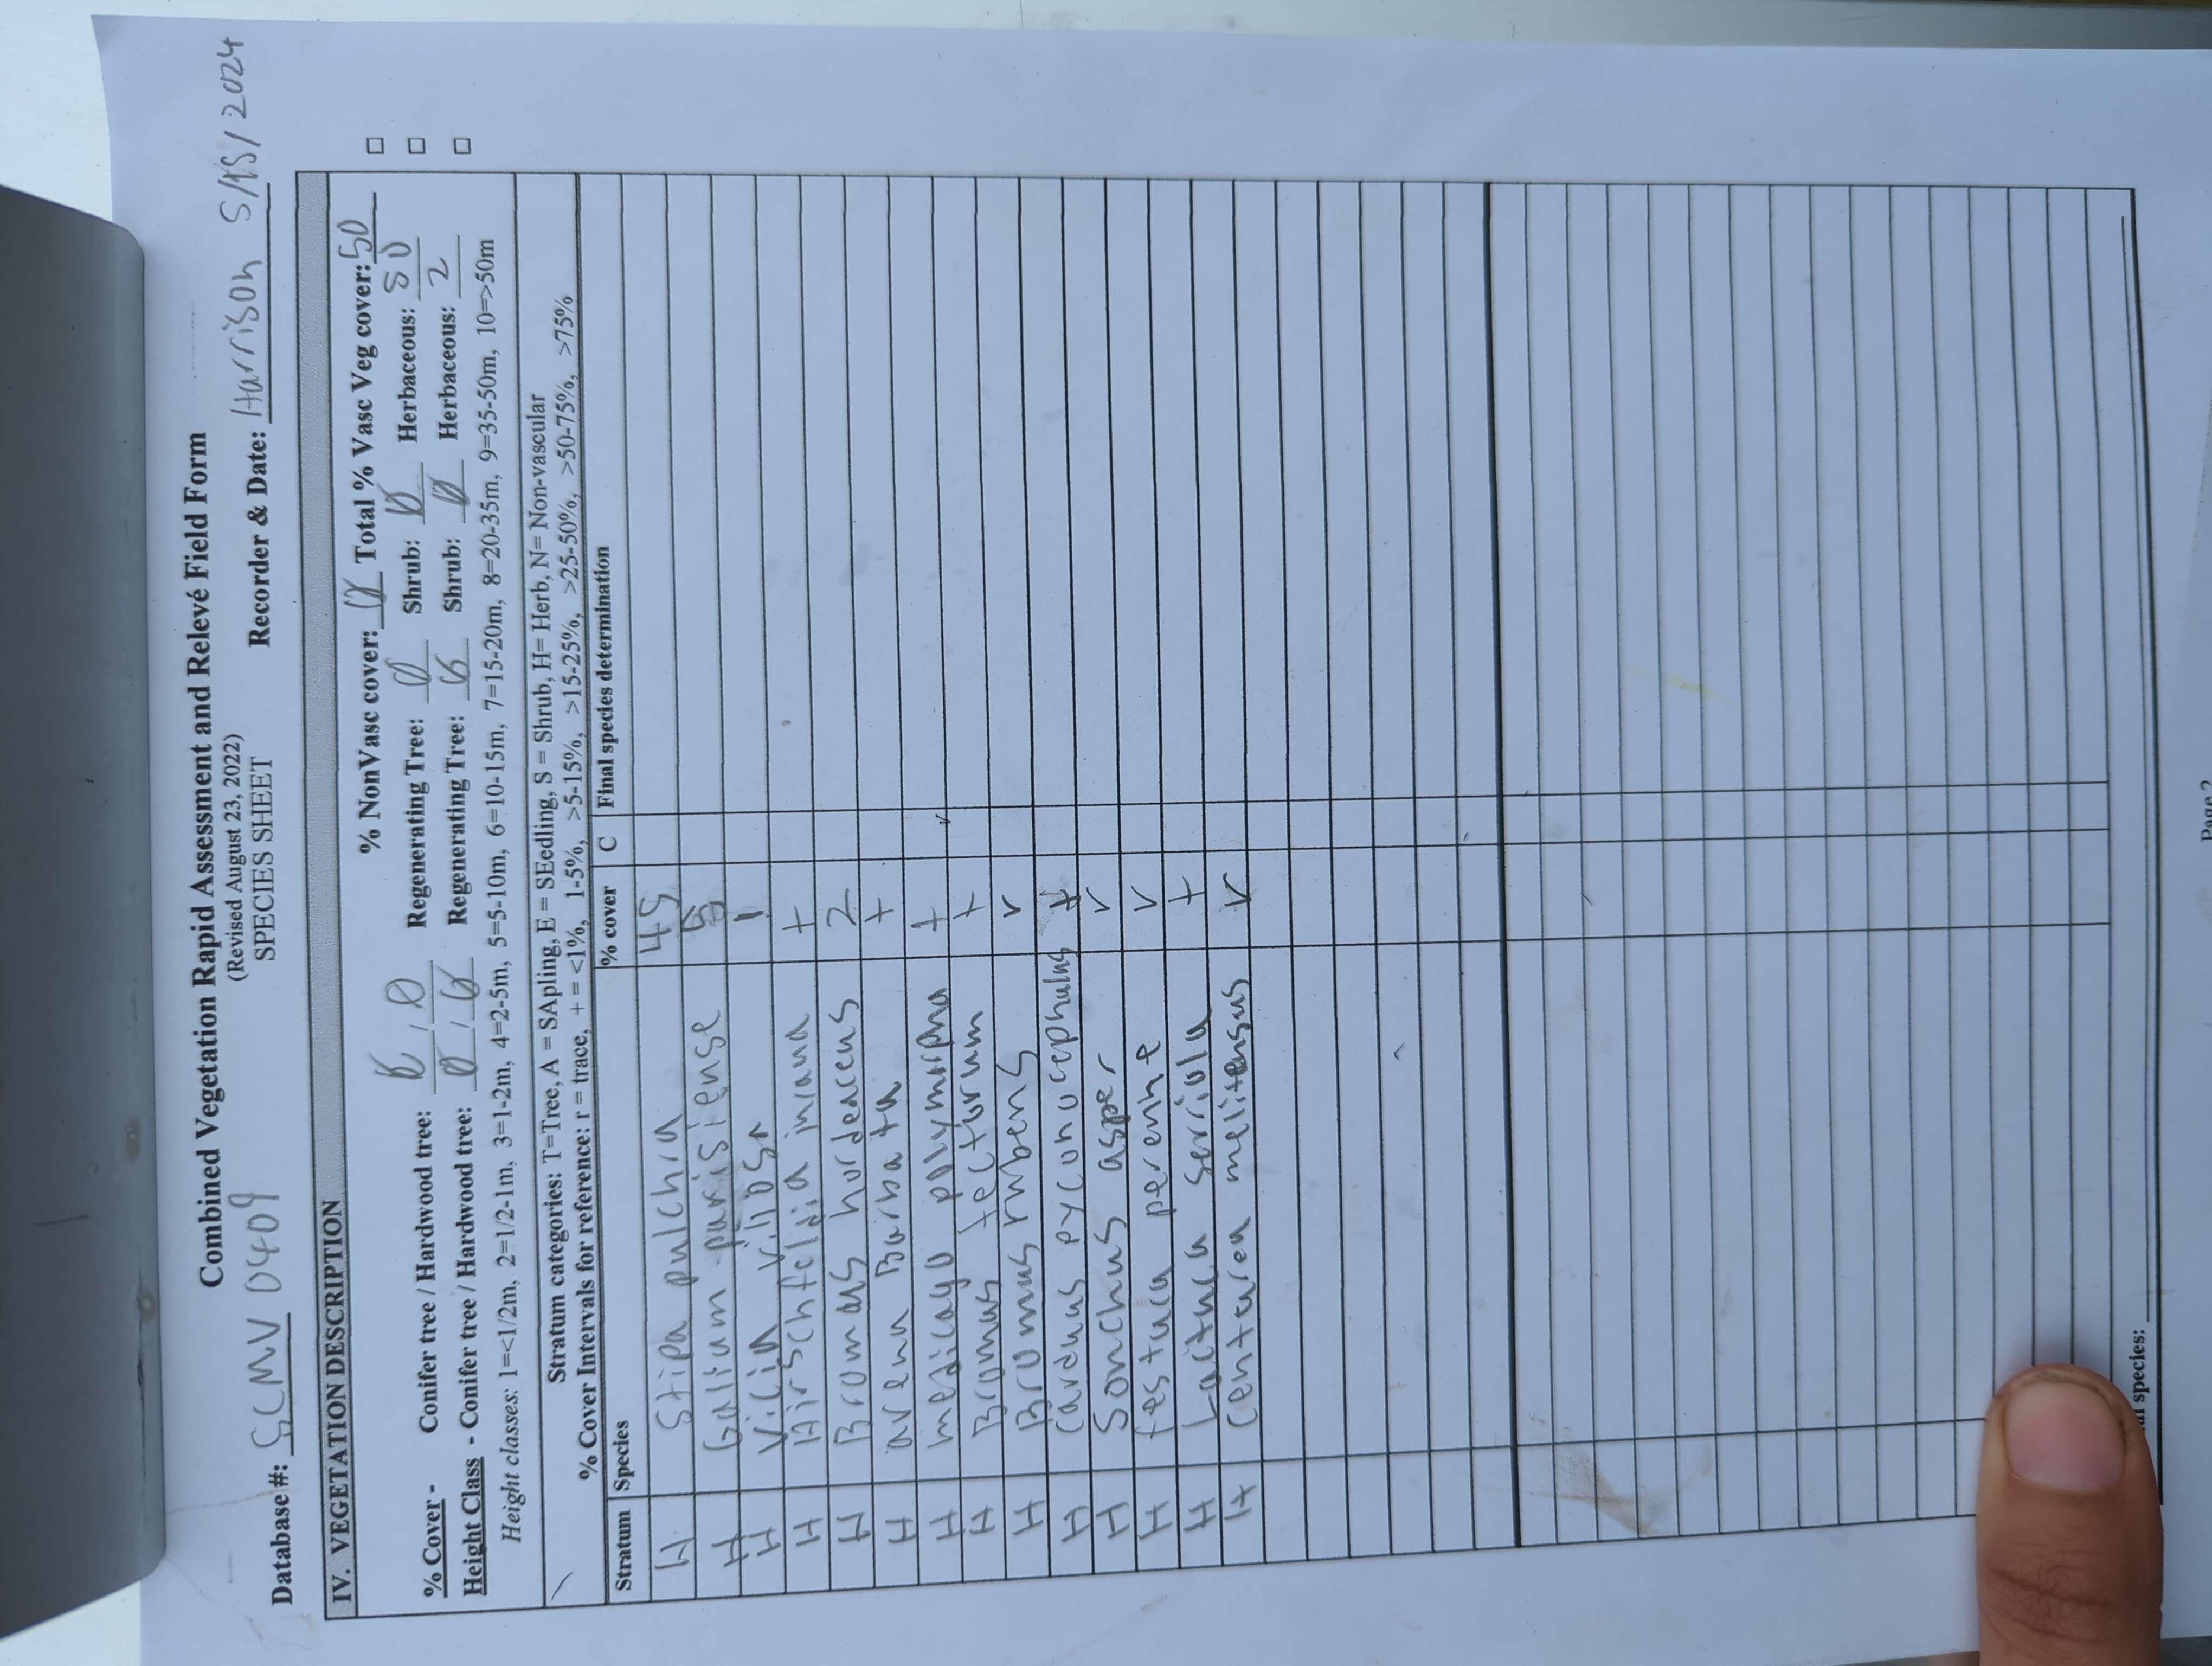 Combined Vegetation Rapid Assessment and Relevé Field Form
(Revised August 23, 2022)
SPECIES SHEET
Database #: SCMV 0409 Recorder & Date: Harrison 5/15/2024
IV. VEGETATION DESCRIPTION
% NonVasc cover: 0 Total % Vasc Veg cover: 50
% Cover - Conifer tree / Hardwood tree: 0 / 0 Regenerating Tree: 0 Shrub: 0 Herbaceous: 50
Height Class - Conifer tree / Hardwood tree: 0 / 0 Regenerating Tree: 0 Shrub: 0 Herbaceous: 2
Height classes: 1=<1/2m, 2=1/2-1m, 3=1-2m, 4=2-5m, 5=5-10m, 6=10-15m, 7=15-20m, 8=20-35m, 9=35-50m, 10=>50m
Stratum categories: T=Tree, A = SApling, E = SEedling, S = Shrub, H= Herb, N= Non-vascular
% Cover Intervals for reference: r = trace, + = <1%, 1-5%, >5-15%, >15-25%, >25-50%, >50-75%, >75%
Stratum Species % cover C Final species determination
H Stipa pulchra 45
H Galium parisiense 5
H Vicia villosa 1
H Hirschfeldia incana +
H Bromus hordeaceus 2
H avena Barbata +
H medicago polymorpha +
H Bromus tectorum +
H Bromus rubens r
H Carduus pycnocephalus +
H Sonchus asper r
H festuca perenne r
H Lactuca serriola +
H Centarea melitensus r
species:
Page 2